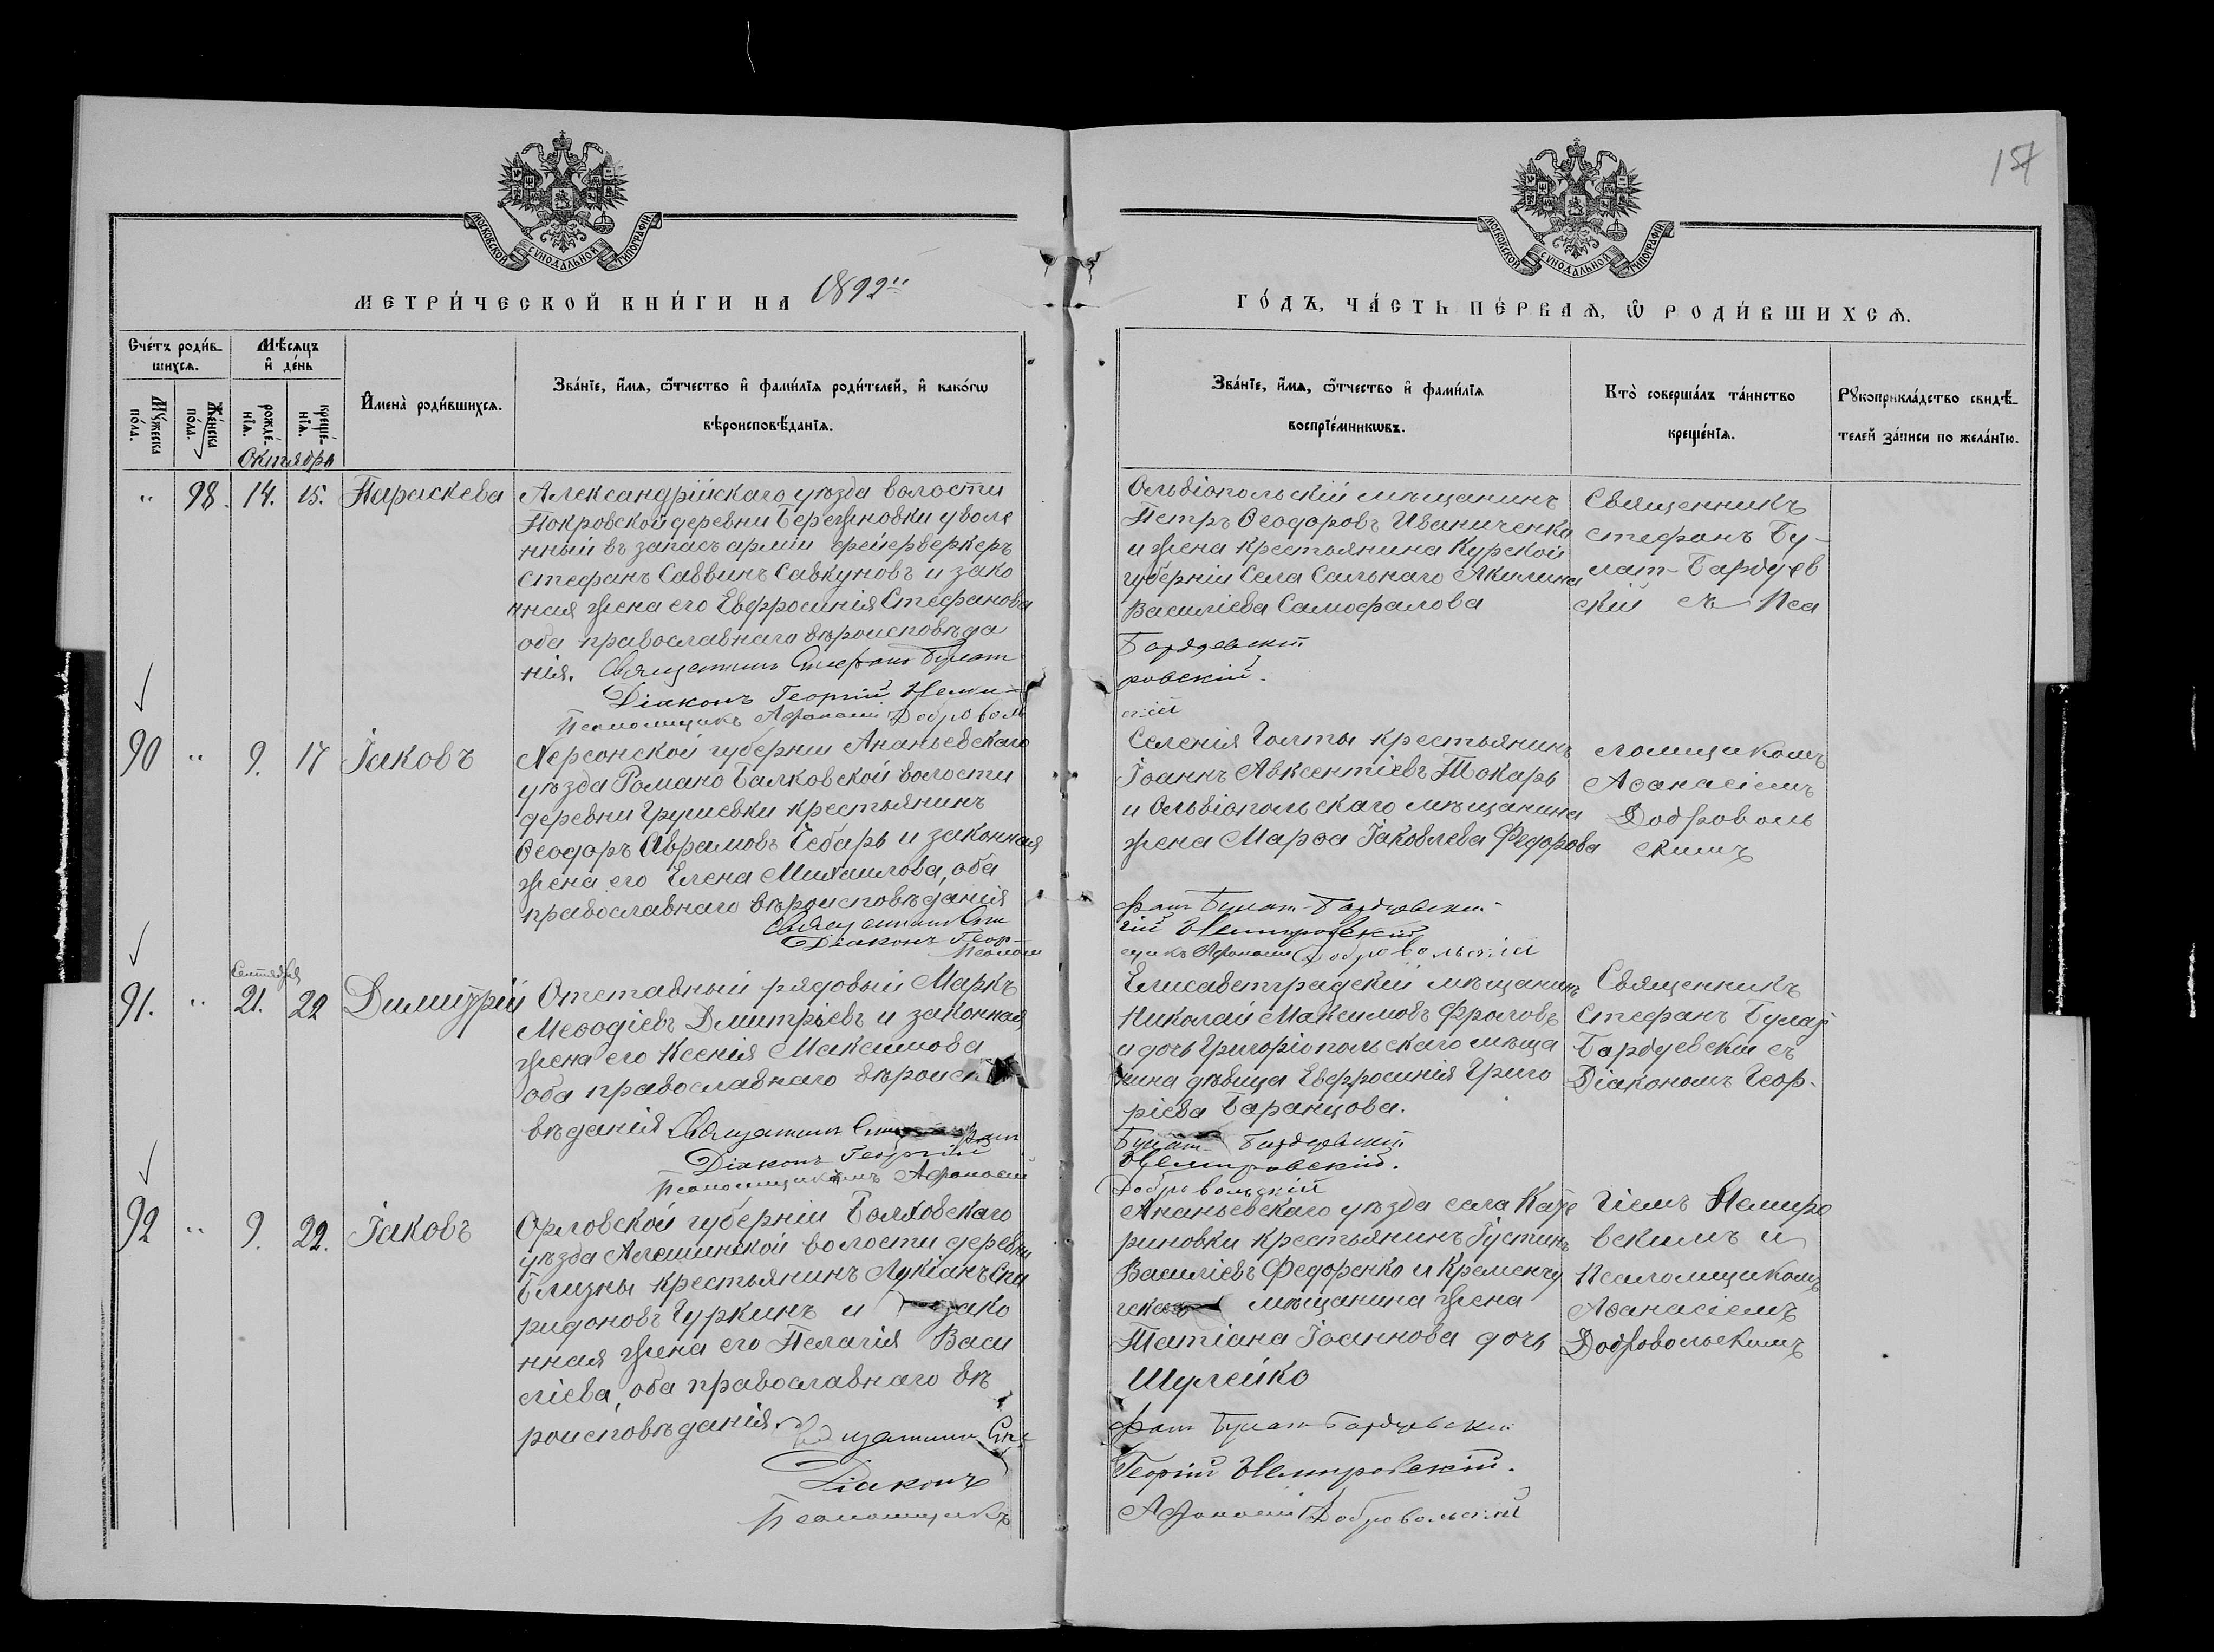 157
МОСКОВСКОЙ СѴНОДАЛЬНОЙ ТИПОГРАФІИ
МОСКОВСКОЙ СѴНОДАЛЬНОЙ ТИПОГРАФІИ
МЕТРИ́ЧЕСКОЙ КНИ́ГИ НА 1892й
ГО́ДЪ, ЧА́СТЬ ПЕ́РВАѦ, Ѡ҆ РОДИ́ВШИХСѦ.
Сче́тъ роди́в-
шихсѧ.
Мꙋ́жеска по́ла.
Же́нска по́ла.
Мѣ́сѧцъ
и҆ де́нь
рожде́-нїѧ.
креще́-нїѧ.
Октябрь
И҆мена̀ роди́вшихсѧ.
Зва́нїе, и҆́мѧ, ѻ҆́тчество и҆ фами́лїѧ роди́телей, и҆ како́гѡ
вѣроисповѣ́данїѧ.
Зва́нїе, и҆́мѧ, ѻ҆́тчество и҆ фами́лїѧ
воспрїе́мникѡвъ.
Кто̀ соверша́лъ та́инство
креще́нїѧ.
Рꙋкоприкла́дство свидѣ́-
телей за́писи по жела́нїю.
" 98. 14. 15. Параскева
Александрійскаго уѣзда волости
Покровской деревни Бережновки уволе
нный въ запасъ арміи фейерверкеръ
Стефанъ Саввинъ Савкуновъ и зако
нная жена его Евфросинія Стефанова
оба православнаго вѣроисповѣда
нія. Священникъ Стефанъ Булат
Діаконъ Георгій Неми-
Псаломщикъ Афанасій Доброволь
Ольвіопольскій мѣщанинъ
Петръ Ѳеодоровъ Иваниченко
и жена крестьянина Курской
губерніи Села Сальнаго Акилина
Василіева Самофалова
Бардуевскій
ровскій.
скій
Священникъ
Стефанъ Бу-
лат-Бардуев
скій съ Пса
90 " 9. 17 Іаковъ
Херсонской губерніи Ананьевскаго
уѣзда Романо Балковской волости
деревни Грушевки крестьянинъ
Ѳеодоръ Аврамовъ Чебарь и законная
жена его Елена Михаилова, оба
православнаго вѣроисповѣданія
Священникъ Сте
Діаконъ Геор-
Псалом
Селенія Голты крестьянинъ
Іоаннъ Авксентіевъ Токарь
и Ольвіопольскаго мѣщанина
жена Марѳа Іаковлева Федорова
фанъ Булат-Бардуевскій
гій Немировскій
щикъ Афанасій Добровольскій
ломщикомъ
Аѳанасіемъ
Доброволь
скимъ
Сентября
91. " 21. 22 Димитрій
Отставный рядовый Маркъ
Меѳодіевъ Дмитріевъ и законная
жена его Ксенія Максимова
оба православнаго вѣроиспо
вѣданія Священникъ
Діаконъ Георгій
Псаломщикъ Афанасій
Елисаветградскій мѣщанинъ
Николай Максимовъ Фроловъ
и дочь Григоріопольскаго мѣща
нина дѣвица Евфросинія Григо
ріева Баранцова.
Булат-Бардуевскій
Немировскій.
Добровольскій
Священникъ
Стефанъ Булат
Бардуевскій съ
Діакономъ Геор-
92 " 9. 22. Іаковъ
Орловской губерніи Болховскаго
уѣзда Алешинской волости деревни
Близны крестьянинъ Лукіанъ Спи
ридоновъ Чуркинъ и зако
нная жена его Пелагія Васи
ліева, оба православнаго вѣ
роисповѣданія. Священникъ Сте
Діаконъ
Псаломщикъ
Ананьевскаго уѣзда села Кате
риновки крестьянинъ Іустинъ
Василіевъ Федоренко и Кременчу
гскаго мѣщанина жена
Татіана Іоаннова дочь
Шулейко
фанъ Булат-Бардуевскій
Георгій Немировскій.
Афанасій Добровольскій
гіемъ Немиро
вскимъ и
Псаломщикомъ
Аѳанасіемъ
Добровольскимъ